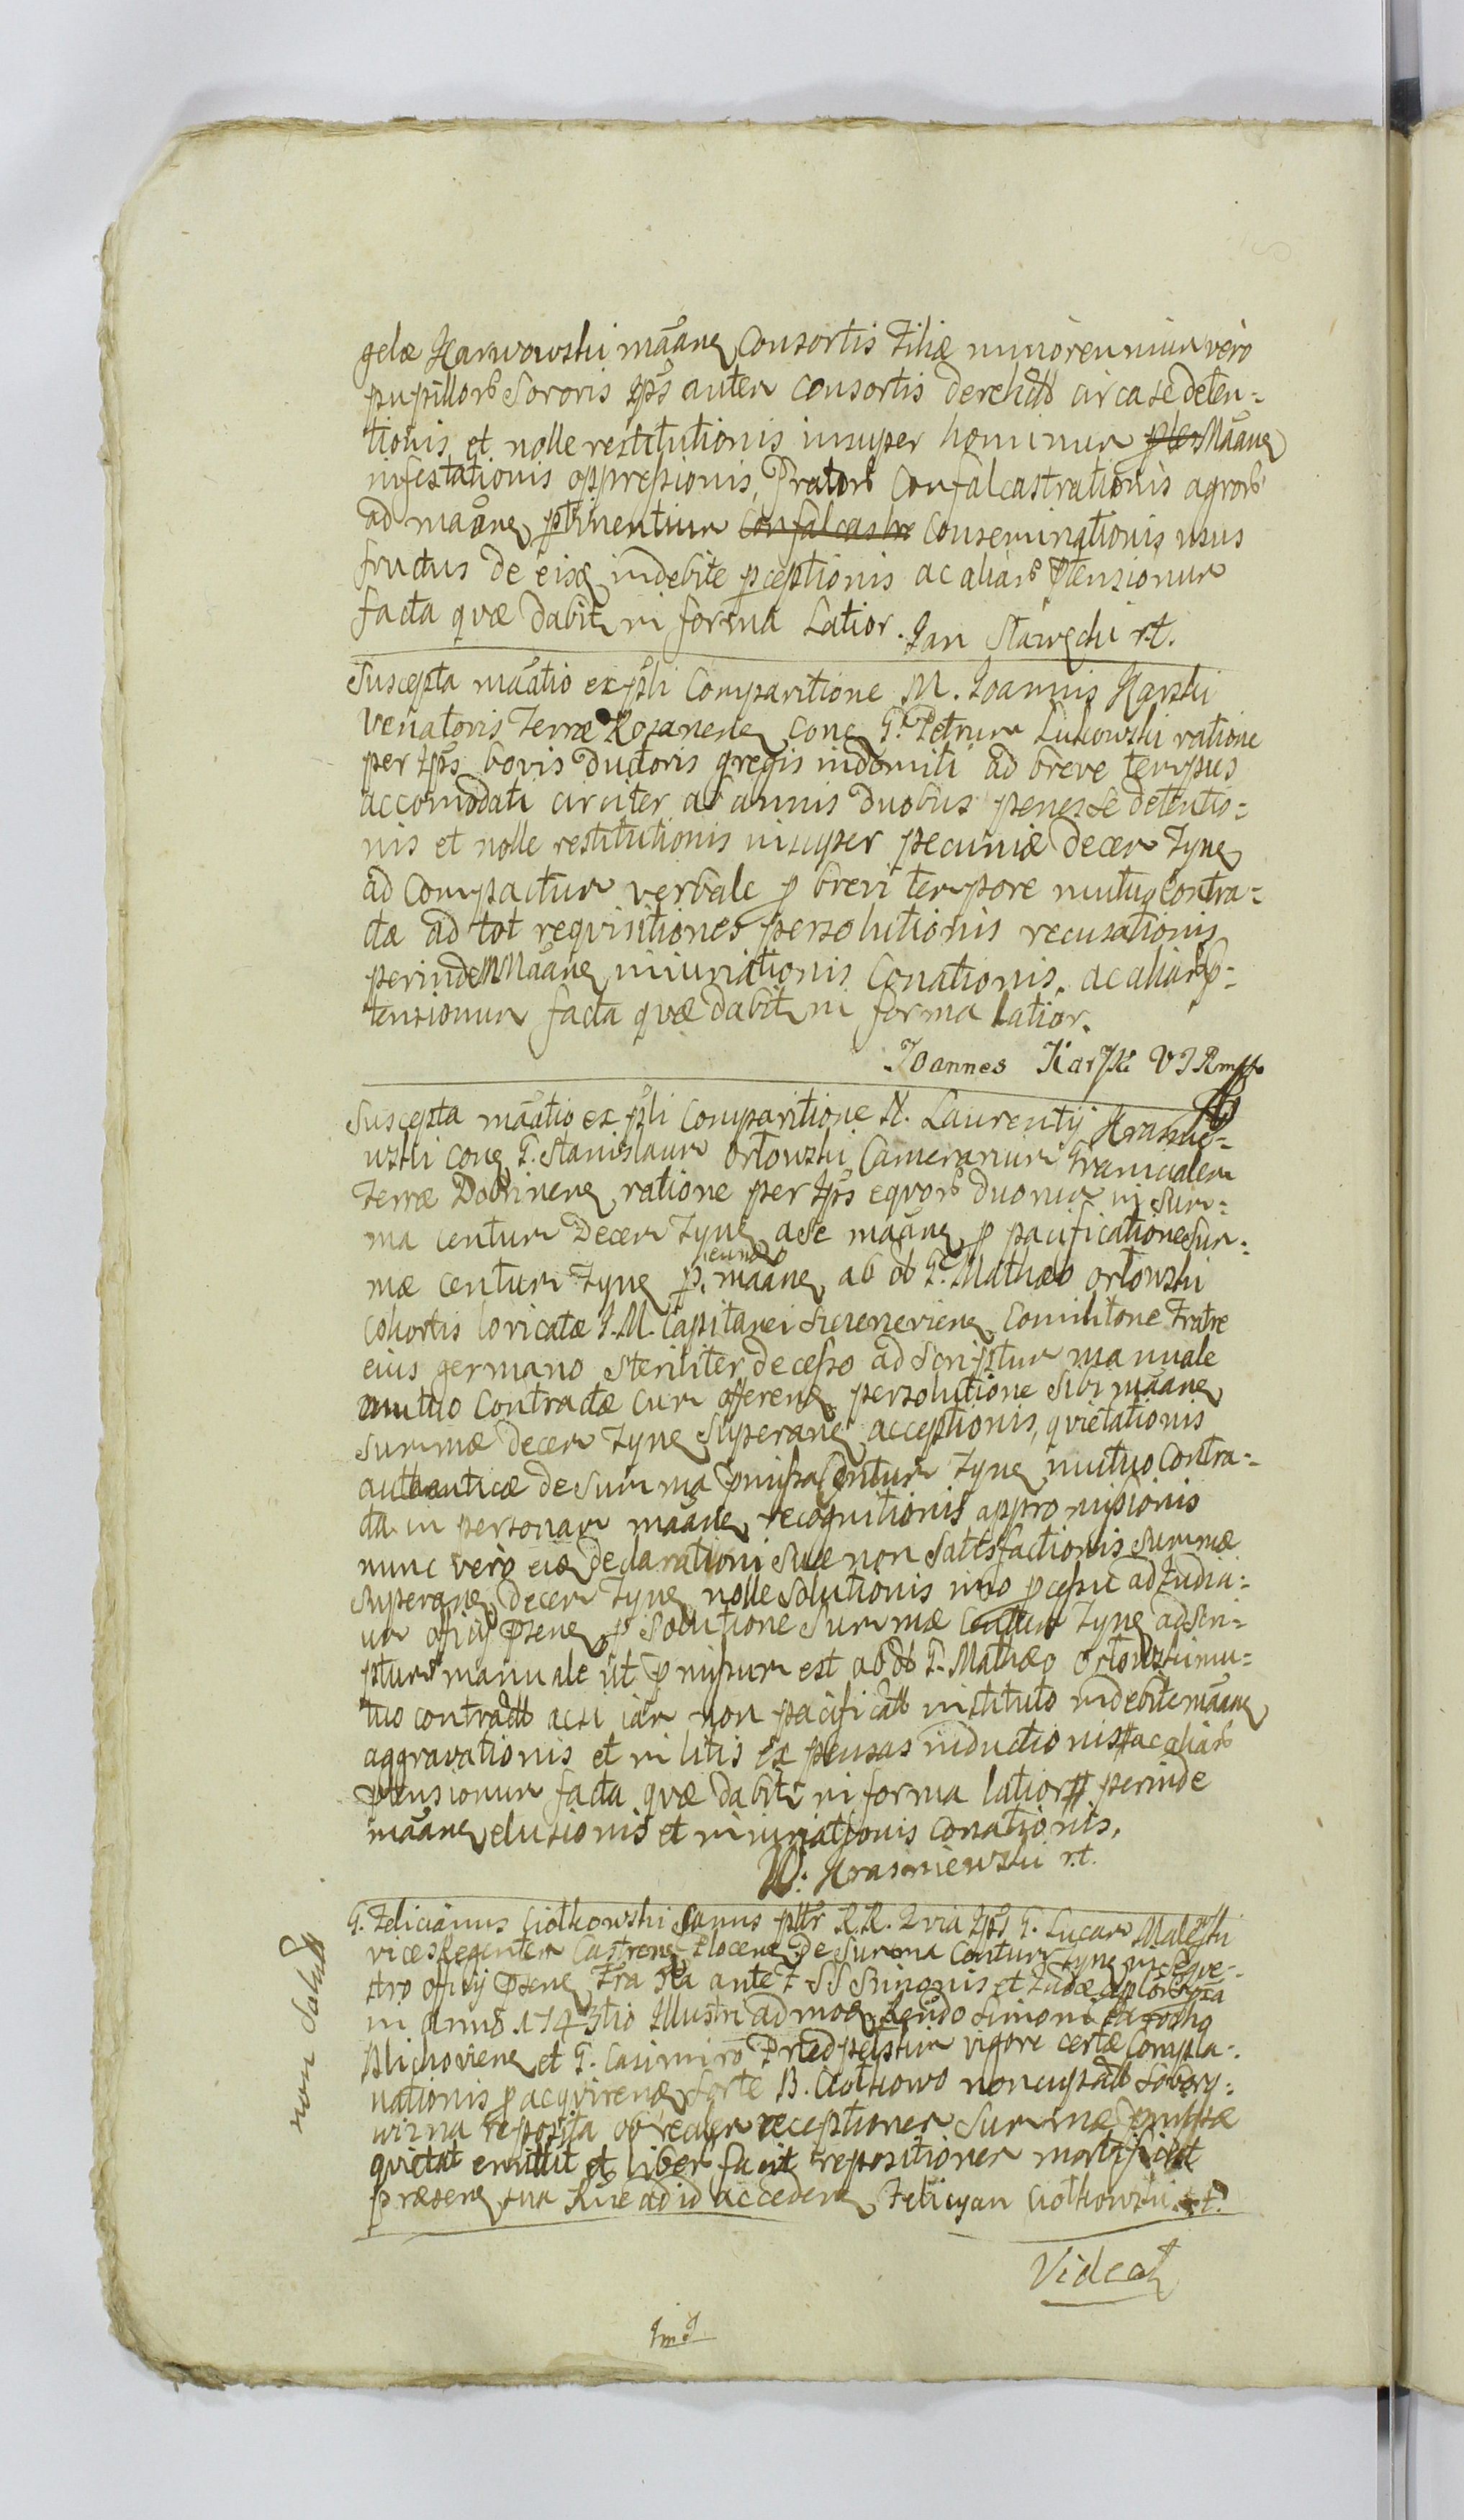 gelæ Karwowski mãane Consortis Filiæ minorennium vero
pupillorũ Sororis Ips autem Consortis derelict circa se deten=
tionis et nolle restitutionis insuper hominum Mãane
infestationis oppressionis, Pratorũ Confalcastrationis agrorũ
ad mãane ptinentium Confalcastre Conseminationis usus
fructus de eisq indebite pceptionis ac aliarũ ptensionum
facta quæ dabit in forma Latior. Jan Stawecki r.t.
Suscepta mãatio ex psli Comparitione M. Joannis Karski
Venatoris Terræ Rozanens cone G. Petrum Lukowski ratione
per Ips bovis ductoris gregis indomiti ad breve tempus
accomodati circiter ab annis duobus penes se detentio=
nis et nolle restitutionis insuper pecuniæ decem Tyne
ad Compactum verbale p brevi tempore mutuo Contra=
ctæ ad tot requisitiones persolutionis recusationis
perinde Mãane iniuriationis Conationis, ac aliarũ p=
tensionum facta quæ dabit in forma latior.
Joannes Karski V T R mpp
Suscepta mãatio ex psli Comparitione N. Laurentij Krasnie=
wski cone G. Stanislaum Orłowski Camerarium Granicialem
Terræ Dobrinens ratione per Ips equorũ duorum in Sum=
ma centum Decem Tyne a se mãane p pacificatione Sum=
mæ centum Tyne p. mãane ab ob G. Mathæo Orłowski
Cohortis loricatæ J. M. Capitanei Commilitone Fratre
eius germano steriliter decesso ad Scriptum manuale
mutuo Contractæ cum offerens persolutione sibi mãane
summæ decem Tyne Superans acceptionis, quietationis
authenticæ de Summa pmissa Centum Tyne mutuo Contra=
cta in personam mãane recognitionis appromissionis
nunc vero eiq declarationi suæ non Satisfactionis Summæ
Superans decem Tyne nolle Solutionis imo pcessu ad Iudici=
um officij psens p Solutione Summæ Centum Tyne ad Scri=
ptum manuale ut pmissum est ab ob G. Mathæo Orłowski mu=
tuo contract acsi iam non pacificat instituto indebite mãane
aggravationis et in litis expensas inductionis # ac aliarũ
ptensionum facta quæ dabit in forma latior # perinde
mãane elusionis et iniuriationis Conationis.
W: Krasniewski r.t.
G. Felicianus Ciołkowski Sanus pltr R.R. Quia Ips G. Lucam Maleski
vices Regentem Castrens Plocens de Summa Centum Tyne in Seque=
stro officij psens Fra 3tia ante F SS Simonis et Iudæ Aplorũ pxa
in Anno 1743tio Illustri admodũ Rendo Simoni
et G. Casimiro vigore certæ Compla=
nationis p acquirens Sorte B. Ciołkowo noncupat
reposita ob realem receptionem Summæ pmissæ
quietat emittit et liberũ facit repositionem mortificat
præsens sua Rne ad id accedens Felicyan Ciołkowski r.t.
Videat
Imd
non Solut